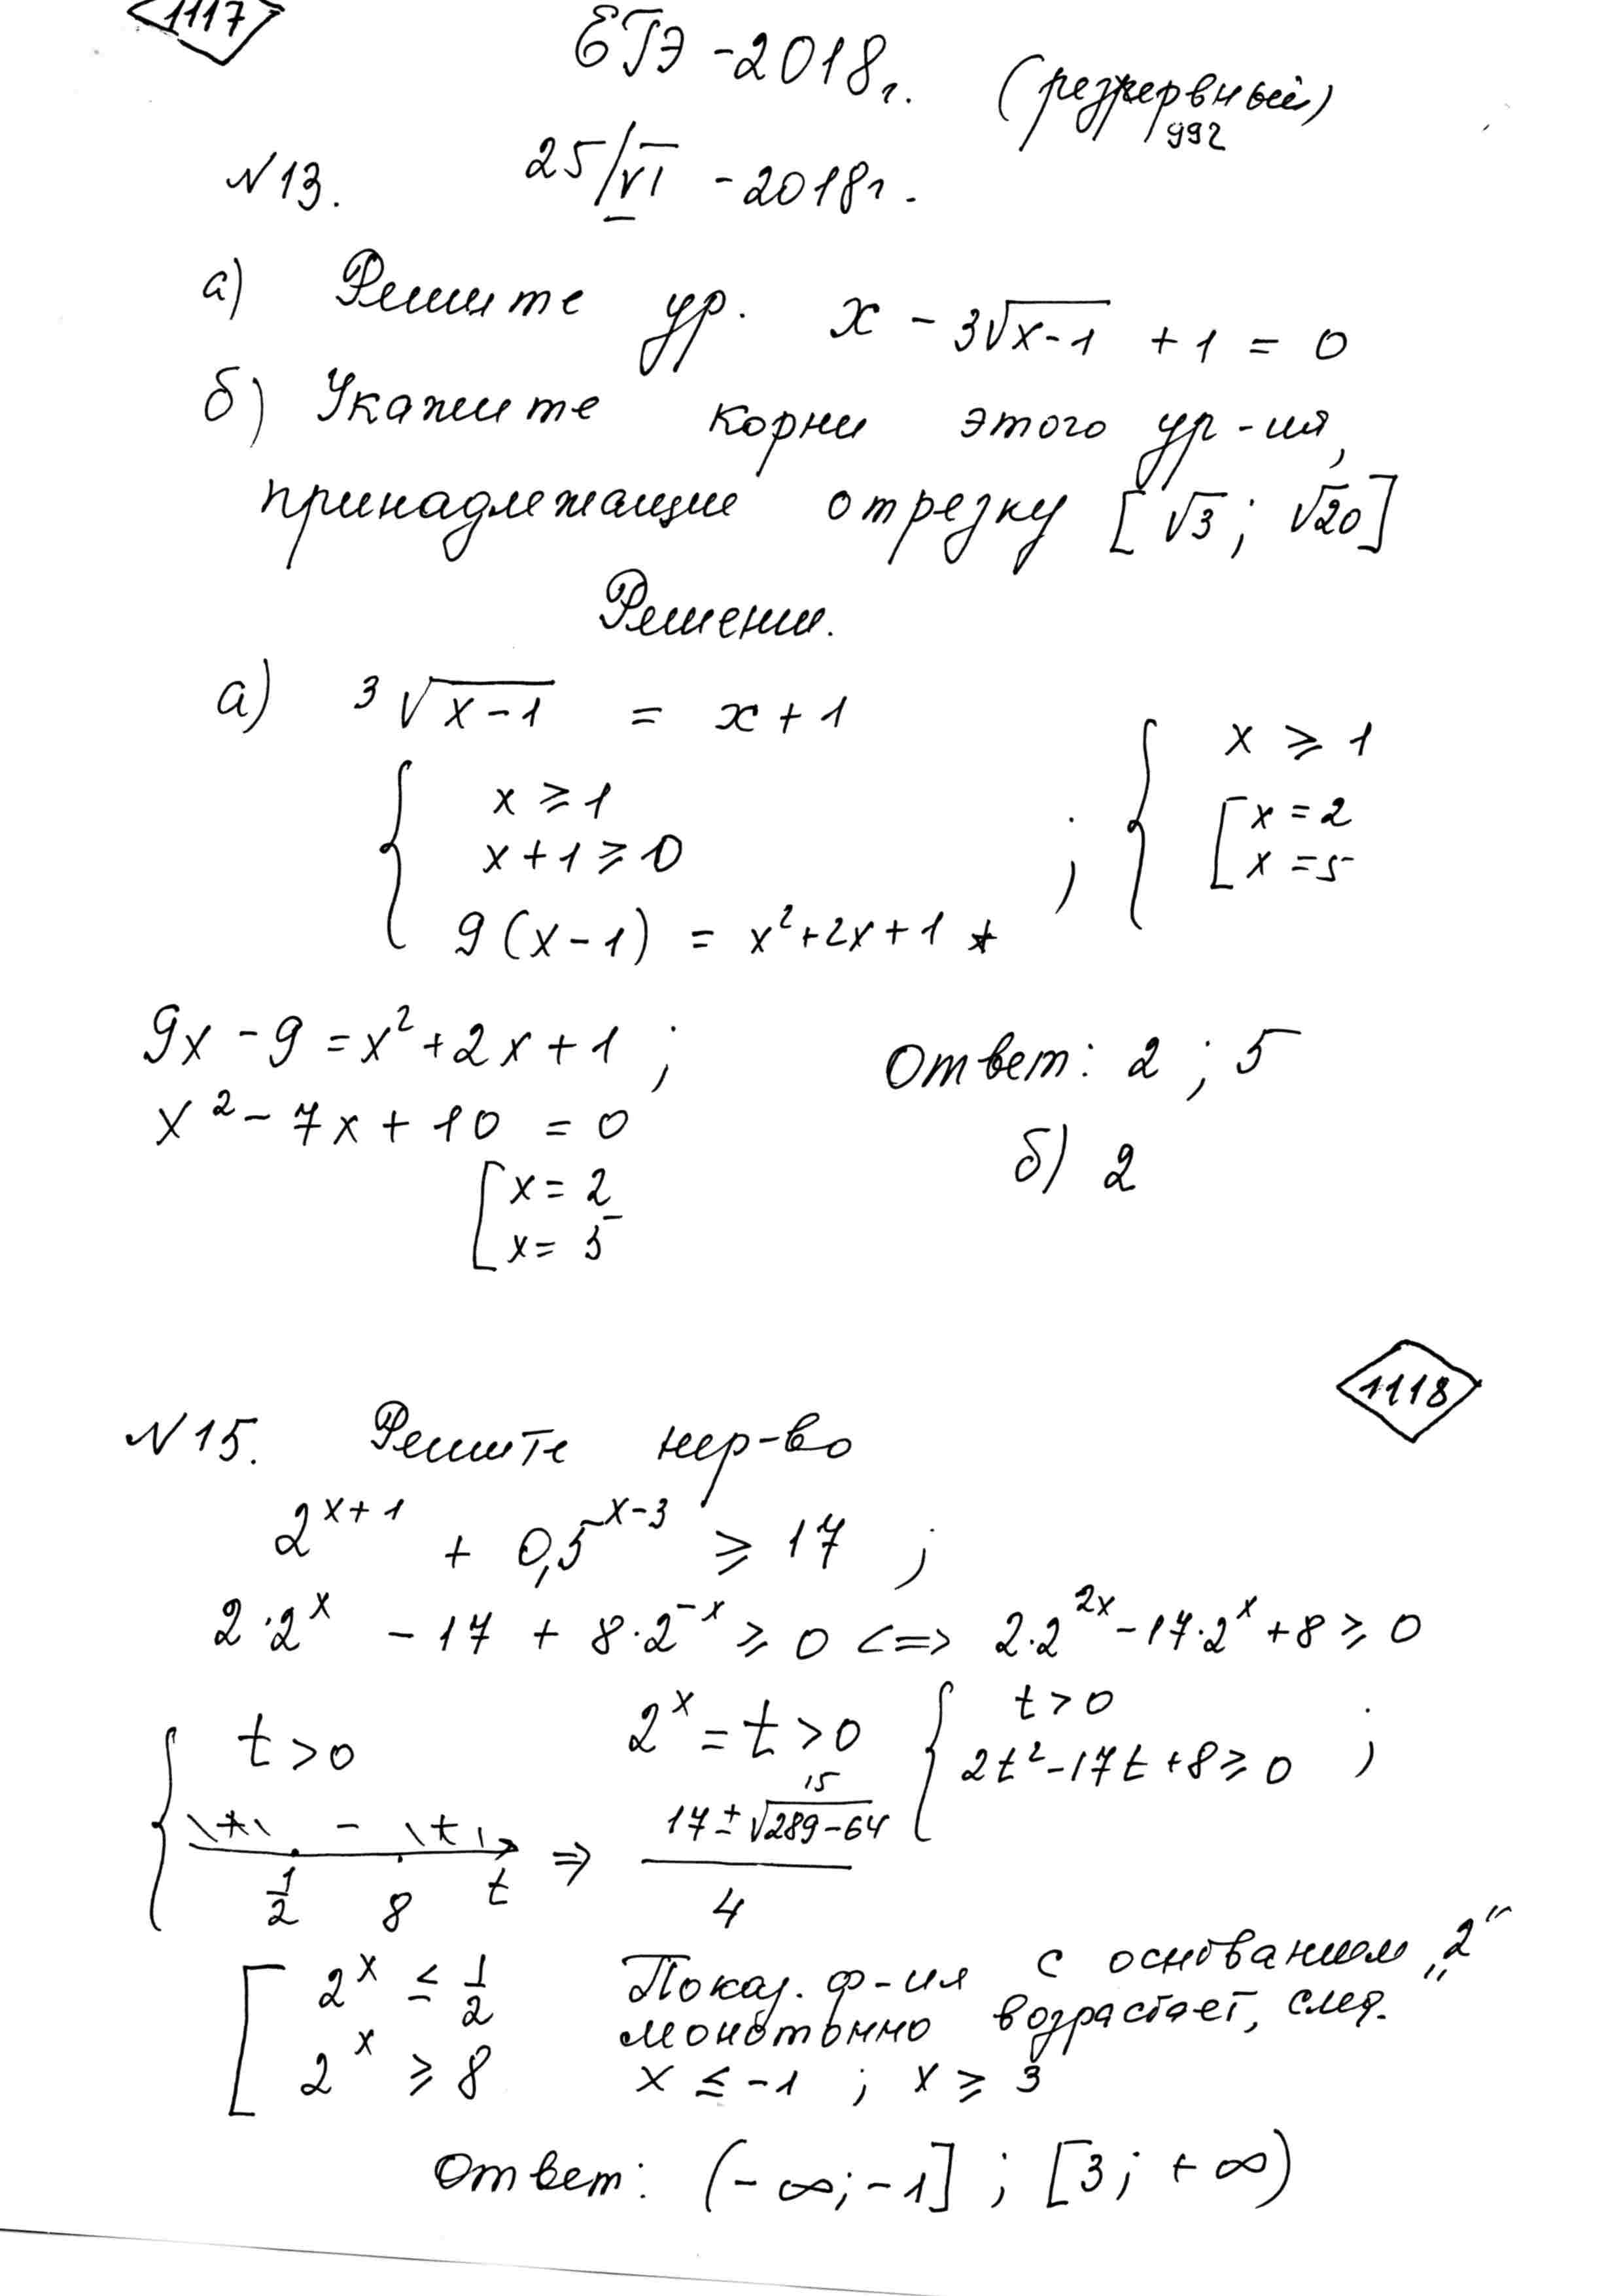 1117
ЕГЭ-2018г. (резервный)
992
N13. 25/VI -2018г.
а) Решите ур. x - 3√(x-1) + 1 = 0
б) Укажите корни этого ур-ия,
принадлежащие отрезку [√3; √20]
Решени.
а) 3√(x-1) = x+1
{ x ≥ 1
x+1 ≥ 0
9(x-1) = x²+2x+1 *
; { x ≥ 1
[ x = 2
x = 5
9x - 9 = x²+2x+1 ;
x² - 7x + 10 = 0
[ x = 2
x = 5
Ответ: 2 ; 5
б) 2
1118
N15. Решите нер-во
2^(x+1) + 0,5^(x-3) ≥ 17 ;
2·2^x - 17 + 8·2^(-x) ≥ 0 <=> 2·2^(2x) - 17·2^x + 8 ≥ 0
2^x = t > 0 { t > 0
2t² - 17t + 8 ≥ 0 ;
{ t > 0
+ - +
1/2 8 t
=> (17 ± √(289-64))/4
15
[ 2^x ≤ 1/2
2^x ≥ 8
Показ. ф-ия с основанием „2“
монотонно возрастает, след.
x ≤ -1 ; x ≥ 3
Ответ: (-∞; -1] ; [3; +∞)